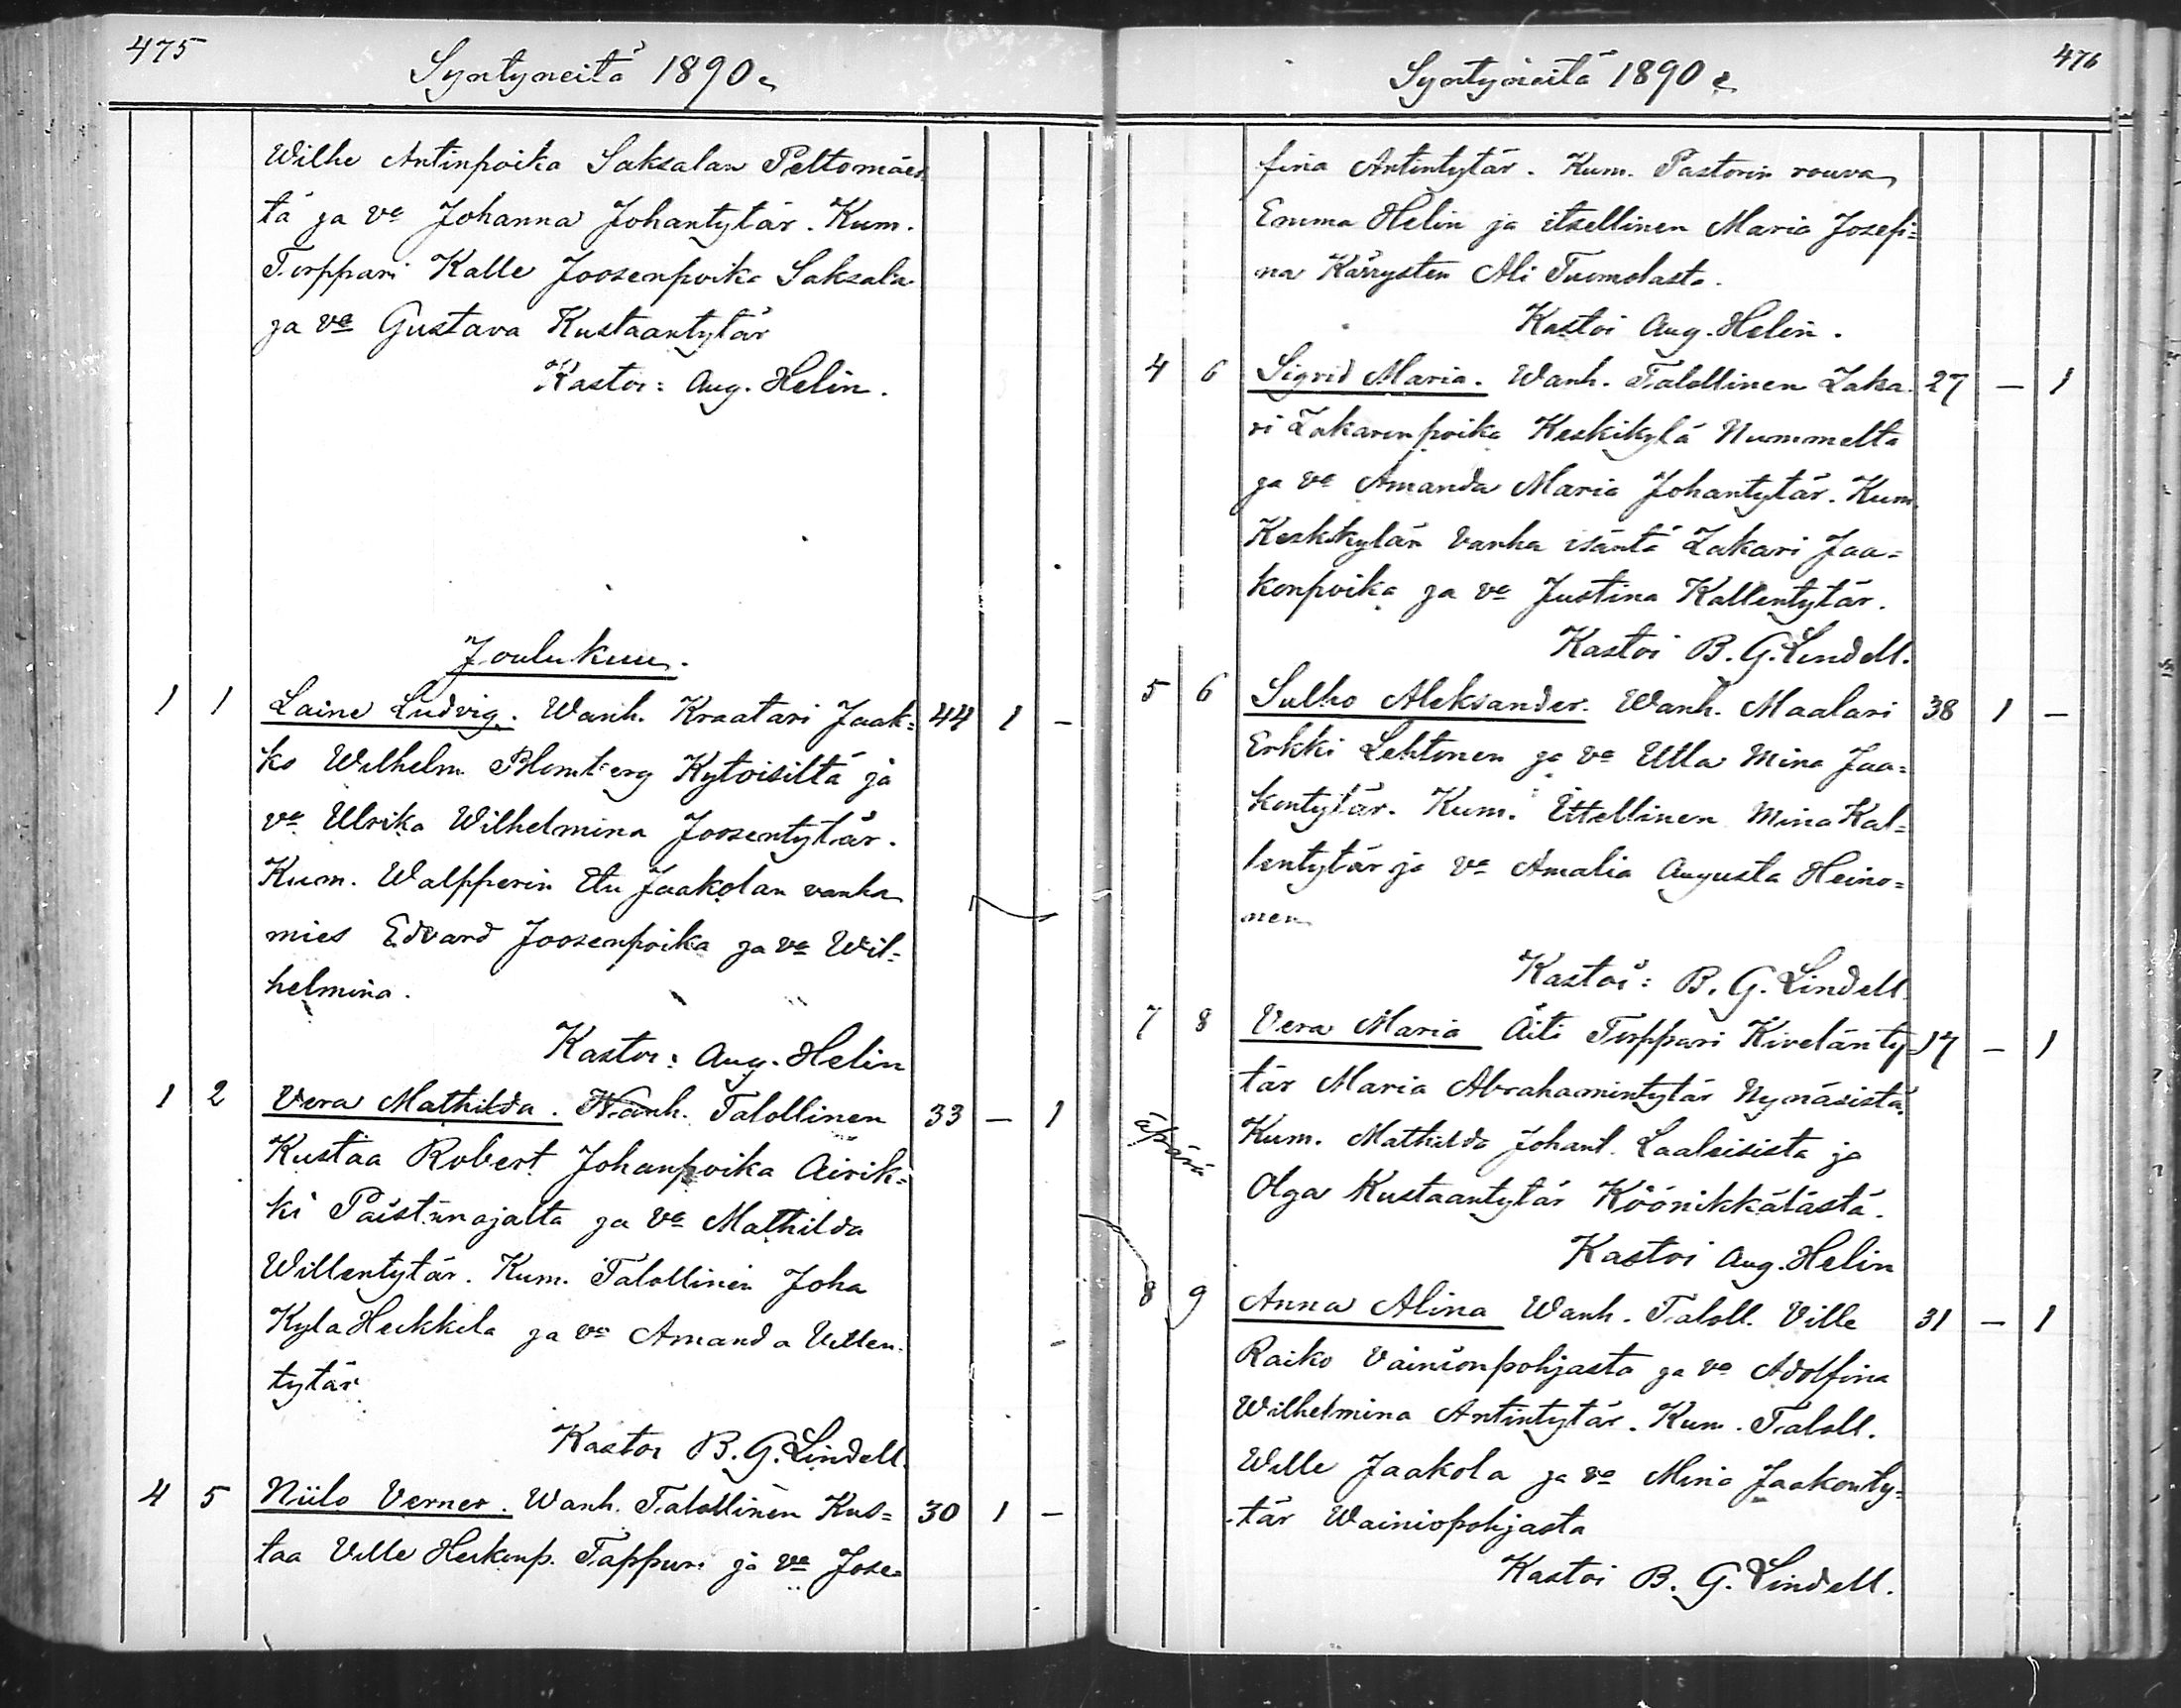 475
Syntyneitä 1890
Wilhe Antinpoika Saksalan Peltomäes
tä ja vo Johanna Johantytär. Kum.
Torppari Kalle Joosenpoika Saksala
ja vo Gustava Kustaantytär
Kastoi: Aug. Helin.
Joulukuu.
1 1 Laine Ludvig. Wanh. Kraatari Jaak= 44 1 –
ko Wilhelm Blomberg Kytoisiltä ja
vo Ulrika Wilhelmina Joosentytär.
Kum. Walpperin Etu Jaakolan vanha
mies Edvard Joosenpoika ja vo Wil=
helmina.
Kastoi: Aug. Helin
1 2 Vera Mathilda. Wanh. Talollinen 33 – 1
Kustaa Robert Johanpoika Airik=
ki Paistinojalta ja vo Mathilda
Willentytär. Kum. Talollinen Joha
Kyla Heikkila ja vo Amanda Villen
tytär
Kastoi B. G. Lindell.
4 5 Niilo Verner. Wanh. Talollinen Kus= 30 1 –
taa Ville Heikinp. Tappuri ja vo Jose=
476
Syntyneitä 1890
fina Antintytär. Kum. Pastorin rouva
Emma Helin ja itsellinen Maria Josefi=
na Kärrysten Ali Tuomolasta.
Kastoi Aug. Helin.
4 6 Sigrid Maria. Wanh. Talollinen Zaka 27 – 1
ri Zakarenpoika Keskikylä Nummelta
ja vo Amanda Maria Johantytär. Kum.
Keskikylän Vanha isäntä Zakari Jaa=
konpoika ja vo Justina Kallentytär.
Kastoi B. G. Lindell.
5 6 Sulho Aleksander. Wanh. Maalari 38 1 –
Erkki Lehtonen ja vo Ulla Mina Jaa=
kontytär. Kum. Ittellinen Mina Kal=
lentytär ja vo Amalia Augusta Heino=
nen
Kastoi: B. G. Lindell.
7 8 Vera Maria Äiti Torppari Kiveläntÿ= 17 – 1
tär Maria Abrahamintytär Nynäsistä.
äpärä Kum. Mathilda Johant. Laaleisista ja
Olga Kustaantytär Köönikkälästä.
Kastoi Aug. Helin
8 9 Anna Alina Wanh. Taloll. Ville 31 – 1
Raiko Vainionpohjasta ja vo Adolfina
Wilhelmina Antintytär. Kum. Taloll.
Wille Jaakola ja vo Mina Jaakonty=
tär Wainiopohjasta
Kastoi B. G. Lindell.